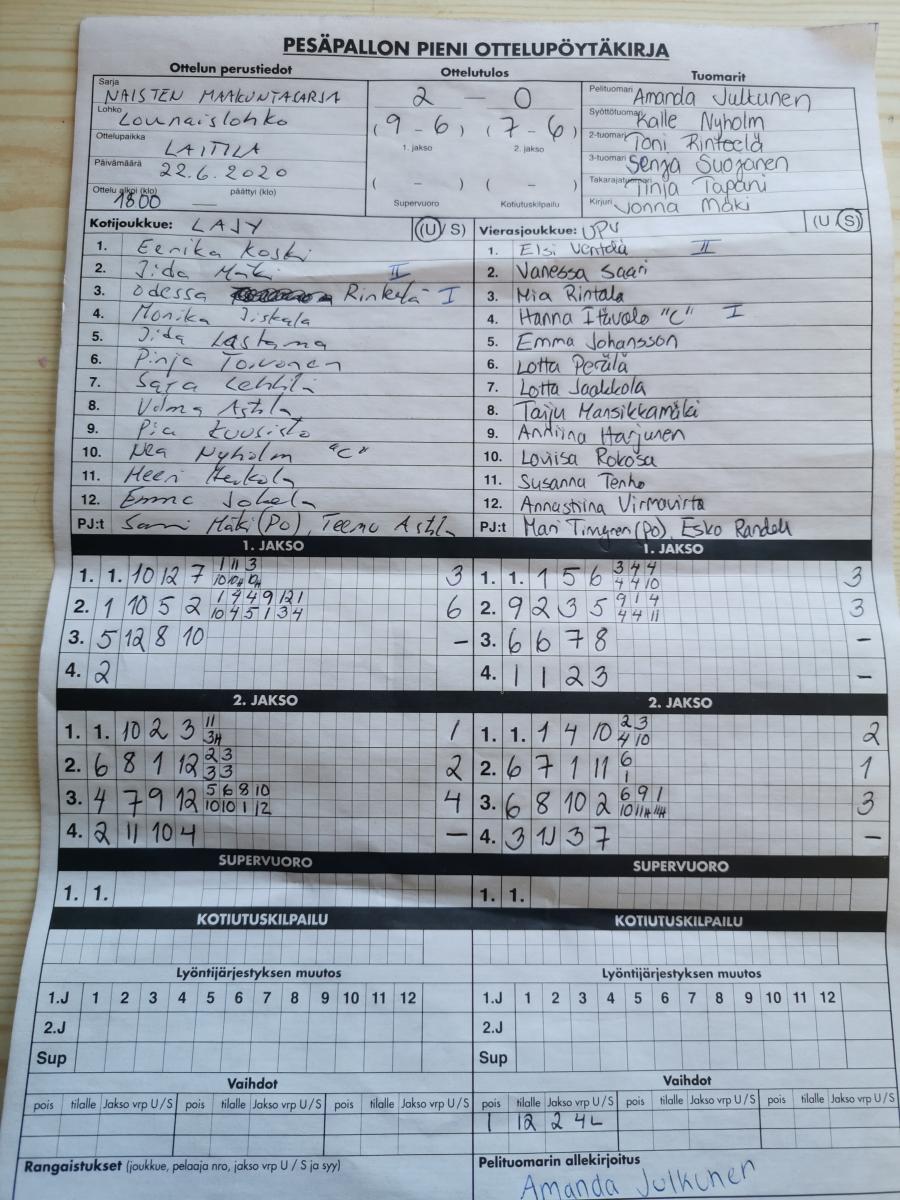 PESÄPALLON PIENI OTTELUPÖYTÄKIRJA
Ottelun perustiedot
Sarja
NAISTEN MAAKUNTASARJA
Lohko
Lounaislohko
Ottelupaikka
LAITILA
Päivämäärä
22.6.2020
Ottelu alkoi (klo) päättyi (klo)
1800 —
Ottelutulos
2 — 0
(9-6) (7-6)
1. jakso 2. jakso
( - ) ( - )
Supervuoro Kotiutuskilpailu
Tuomarit
Pelituomari Amanda Julkunen
Syöttötuomari Kalle Nyholm
2-tuomari Toni Rinteelä
3-tuomari Senja Suojanen
Takarajatuomari Tinja Tapani
Kirjuri Jonna Mäki
Kotijoukkue: LAJY (U/S)
1. Eerika Koski
2. Iida Mäki II
3. Odessa Rinkelä I
4. Monika Iiskala
5. Iida Lastama
6. Pinja Toivonen
7. Saga Lehtilä
8. Vilma Astila
9. Pia Kuusisto
10. Nea Nyholm "C"
11. Heeri Herkola
12. Emma Jokela
PJ:t Sami Mäki (Po), Teemu Astila
Vierasjoukkue: UPV (U/S)
1. Elsi Ventelä II
2. Vanessa Saari
3. Mia Rintala
4. Hanna Itävalo "C" I
5. Emma Johansson
6. Lotta Perälä
7. Lotta Jaakkola
8. Taiju Mansikkamäki
9. Anniina Harjunen
10. Loviisa Rokosa
11. Susanna Tenho
12. Annastiina Virmavirta
PJ:t Mari Timgren (Po), Esko Randell
1. JAKSO
1. 1. 10 12 7 1 11 3 3
10 10H 10H
2. 1 10 5 2 1 4 4 9 12 1 6
10 4 5 1 3 4
3. 5 12 8 10 —
4. 2
1. JAKSO
1. 1. 1 5 6 3 4 4 3
4 4 10
2. 9 2 3 5 9 1 4 3
4 4 11
3. 6 6 7 8 —
4. 1 1 2 3 —
2. JAKSO
1. 1. 10 2 3 11 1
3H
2. 6 8 1 12 2 3 2
3 3
3. 4 7 9 12 5 6 8 10 4
10 10 1 12
4. 2 11 10 4 —
2. JAKSO
1. 1. 1 4 10 2 3 2
4 10
2. 6 7 1 11 6 1
1
3. 6 8 10 2 6 9 1 3
10 11H 11H
4. 3 11 3 7 —
SUPERVUORO
1. 1.
SUPERVUORO
1. 1.
KOTIUTUSKILPAILU
KOTIUTUSKILPAILU
Lyöntijärjestyksen muutos
1.J 1 2 3 4 5 6 7 8 9 10 11 12
2.J
Sup
Lyöntijärjestyksen muutos
1.J 1 2 3 4 5 6 7 8 9 10 11 12
2.J
Sup
Vaihdot
pois tilalle Jakso vrp U/S pois tilalle Jakso vrp U/S pois tilalle Jakso vrp U/S
Vaihdot
pois tilalle Jakso vrp U/S pois tilalle Jakso vrp U/S pois tilalle Jakso vrp U/S
1 12 2 4L
Rangaistukset (joukkue, pelaaja nro, jakso vrp U / S ja syy)
Pelituomarin allekirjoitus
Amanda Julkunen